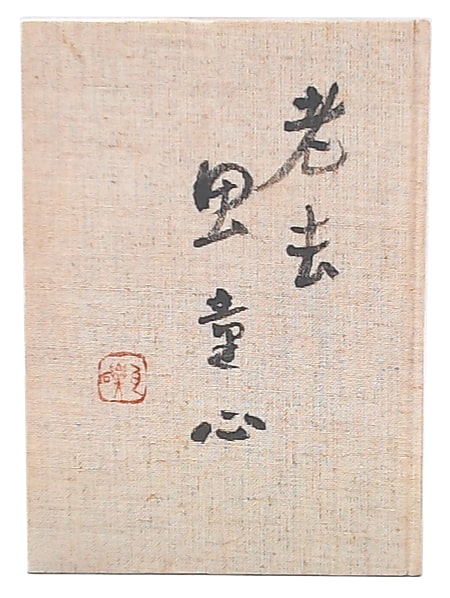 老去
思童心